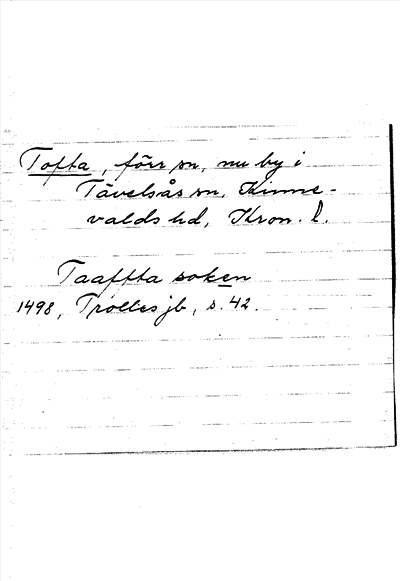 Tofta, förr sn, nu by i
Tävelsås sn, Kinne-
valds hd, Kron. l.
Taaffta soken
1498, Trolles jb, s. 42.